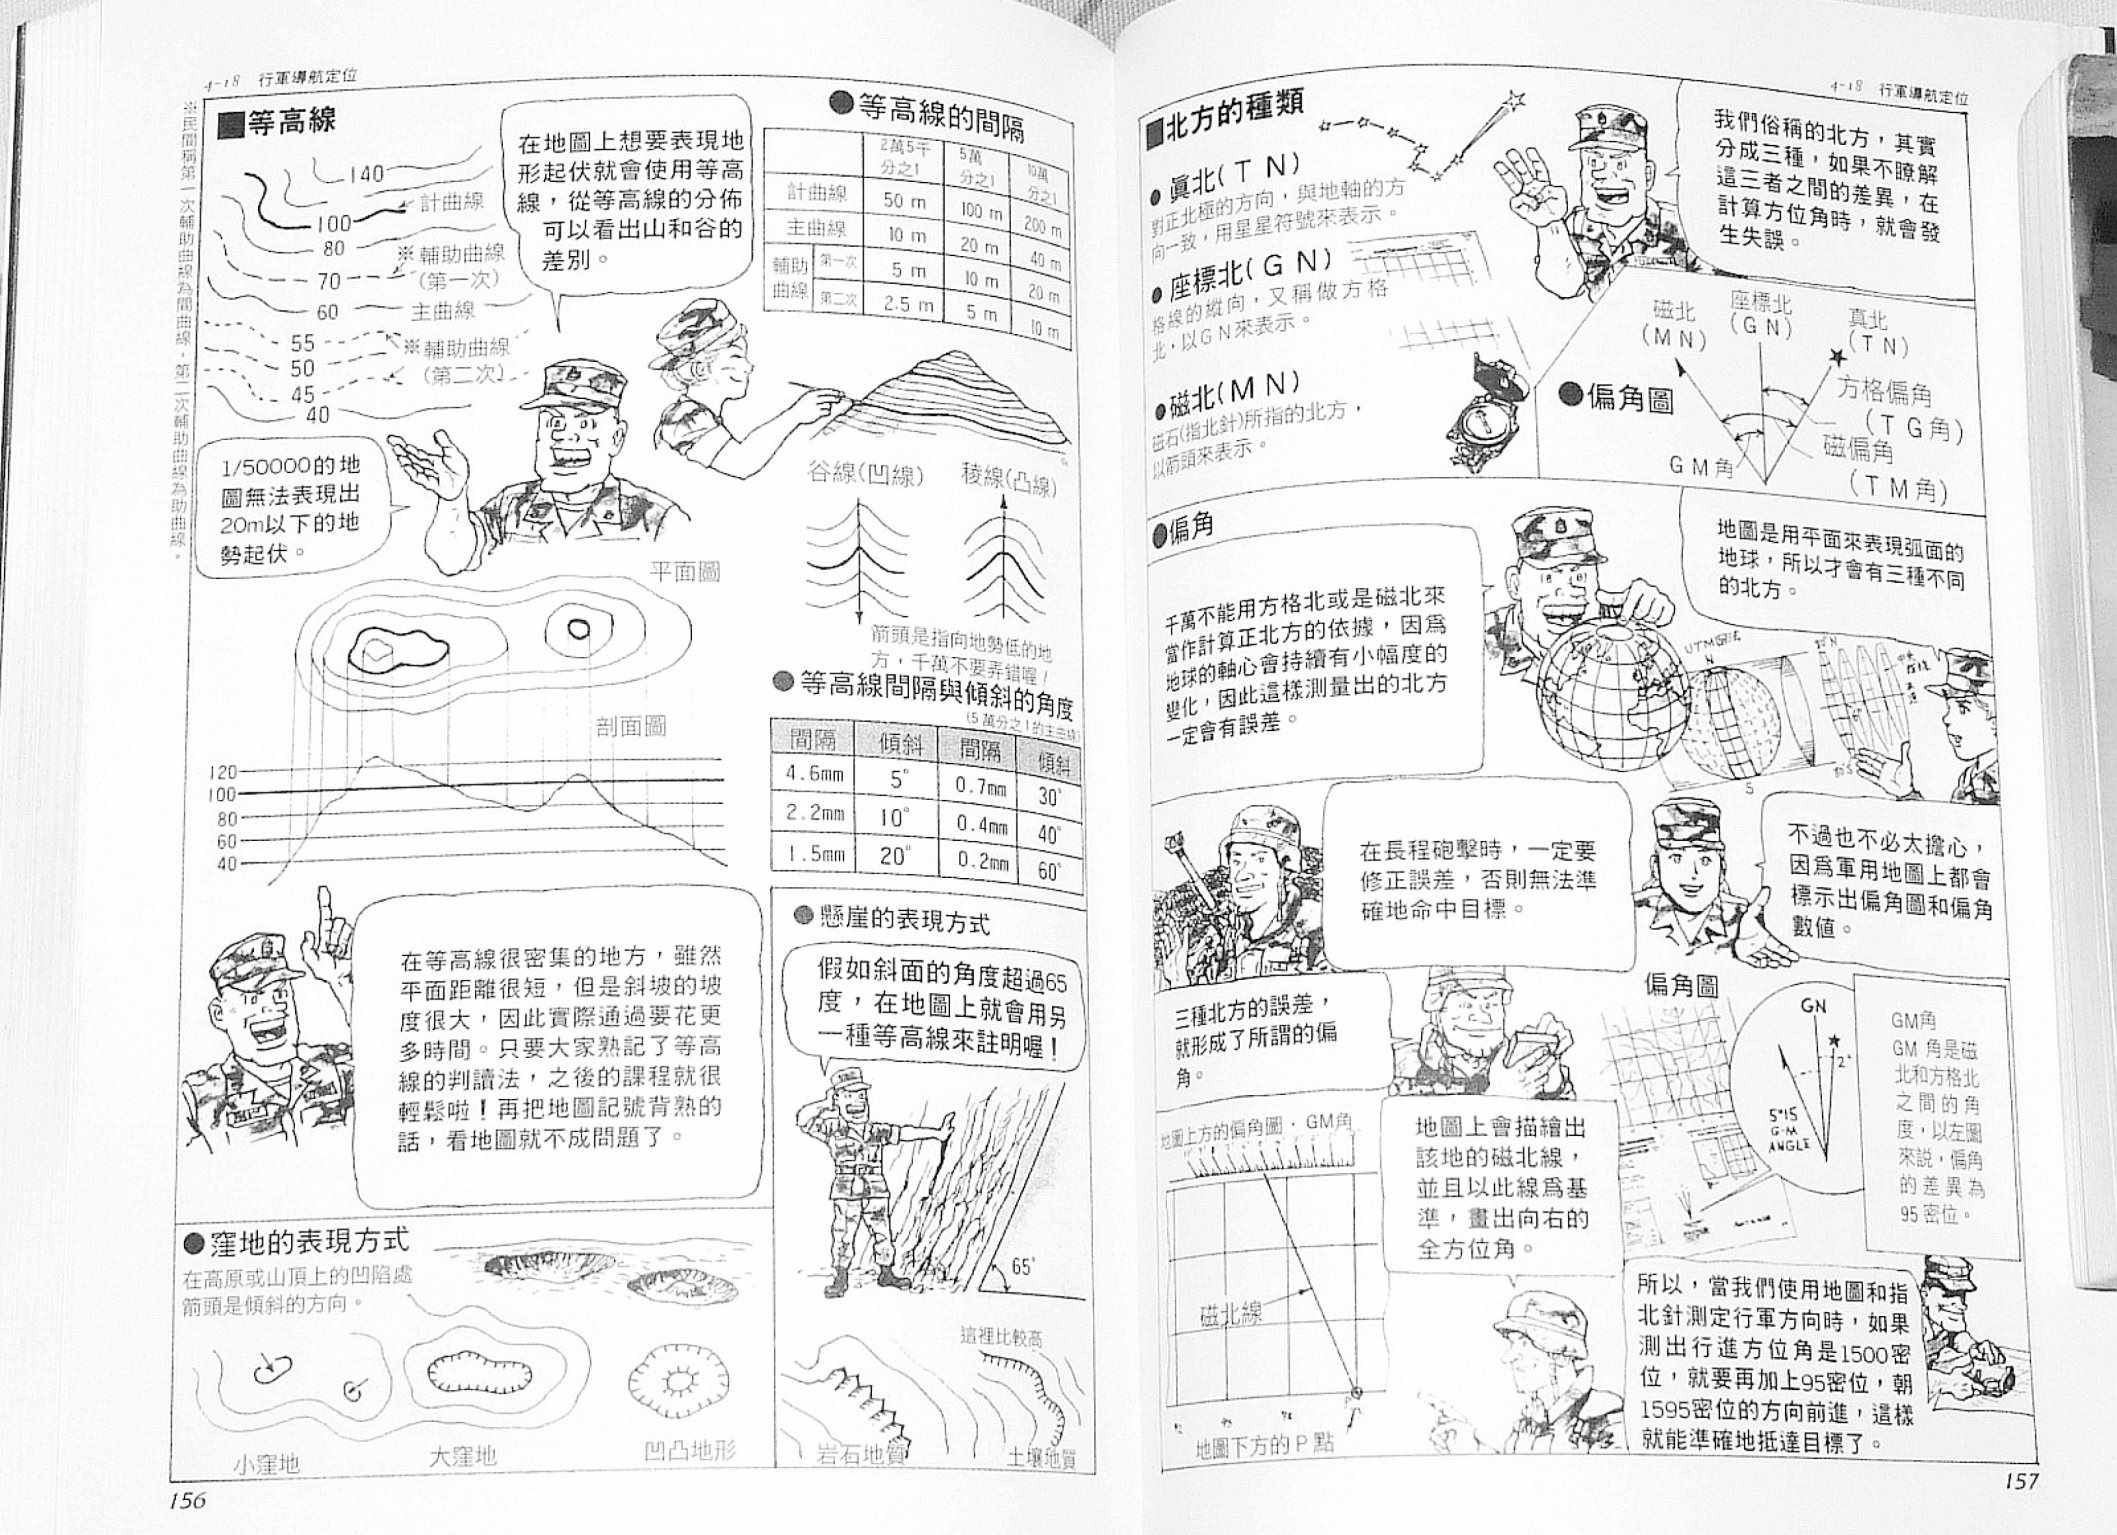 4-18 行軍導航定位
※民間稱第一次輔助曲線為間曲線，第二次輔助曲線為助曲線。
■等高線
140
100
計曲線
80
※輔助曲線
70
(第一次)
60
主曲線
55
※輔助曲線
50
(第二次)
45
40
在地圖上想要表現地
形起伏就會使用等高
線，從等高線的分佈
可以看出山和谷的
差別。
●等高線的間隔
2萬5千分之1 5萬分之1 10萬分之1
計曲線 50 m 100 m 200 m
主曲線 10 m 20 m 40 m
輔助曲線 第一次 5 m 10 m 20 m
第二次 2.5 m 5 m 10 m
1/50000的地
圖無法表現出
20m以下的地
勢起伏。
谷線(凹線) 稜線(凸線)
箭頭是指向地勢低的地
方，千萬不要弄錯喔！
平面圖
剖面圖
120
100
80
60
40
●等高線間隔與傾斜的角度
(5萬分之1的主曲線)
間隔 傾斜 間隔 傾斜
4.6mm 5° 0.7mm 30°
2.2mm 10° 0.4mm 40°
1.5mm 20° 0.2mm 60°
在等高線很密集的地方，雖然
平面距離很短，但是斜坡的坡
度很大，因此實際通過要花更
多時間。只要大家熟記了等高
線的判讀法，之後的課程就很
輕鬆啦！再把地圖記號背熟的
話，看地圖就不成問題了。
●懸崖的表現方式
假如斜面的角度超過65
度，在地圖上就會用另
一種等高線來註明喔！
65°
這裡比較高
岩石地質
土壤地質
●窪地的表現方式
在高原或山頂上的凹陷處
箭頭是傾斜的方向。
小窪地
大窪地
凹凸地形
156
4-18 行軍導航定位
■北方的種類
●眞北(TN)
對正北極的方向，與地軸的方
向一致，用星星符號來表示。
●座標北(GN)
格線的縱向，又稱做方格
北，以GN來表示。
●磁北(MN)
磁石(指北針)所指的北方，
以箭頭來表示。
我們俗稱的北方，其實
分成三種，如果不瞭解
這三者之間的差異，在
計算方位角時，就會發
生失誤。
●偏角圖
磁北
(MN)
座標北
(GN)
真北
(TN)
方格偏角
(TG角)
磁偏角
(TM角)
GM角
●偏角
千萬不能用方格北或是磁北來
當作計算正北方的依據，因爲
地球的軸心會持續有小幅度的
變化，因此這樣測量出的北方
一定會有誤差。
地圖是用平面來表現弧面的
地球，所以才會有三種不同
的北方。
N
S
在長程砲擊時，一定要
修正誤差，否則無法準
確地命中目標。
不過也不必太擔心，
因爲軍用地圖上都會
標示出偏角圖和偏角
數值。
三種北方的誤差，
就形成了所謂的偏
角。
偏角圖
GN
2°
5°15
G-M
ANGLE
GM角
GM 角是磁
北和方格北
之間的角
度，以左圖
來說，偏角
的差異為
95密位。
地圖上方的偏角圖．GM角
磁北線
地圖下方的P點
地圖上會描繪出
該地的磁北線，
並且以此線爲基
準，畫出向右的
全方位角。
所以，當我們使用地圖和指
北針測定行軍方向時，如果
測出行進方位角是1500密
位，就要再加上95密位，朝
1595密位的方向前進，這樣
就能準確地抵達目標了。
157